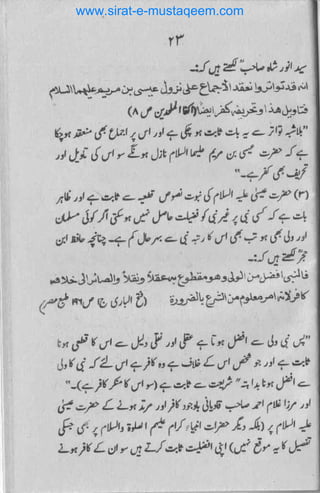 www.sirat-e-mustaqeem.com
۲۳
سید انور شاہ صاحبؒ لکھتے ہیں :۔
انہ قد تواتر وانعقد الاجماع علی نزول عیسی بن مریم علیہما السلام
فتاویل ھذا وتحریفہ کفر ایضاً (اکفار الملحدین ص ۸)
"بلاشبہ تواتر سے یہ بات ثابت ہو چکی ہے اور اس پر اجماع بھی منعقد ہو چکا
ہے کہ حضرت عیسیٰ بن مریم علیہما السلام نازل ہوں گے سو اس کی تاویل اور
تحریف بھی کفر ہے"۔
(۳) حضرت عیسیٰ علیہ السلام کی نبوت نصوص قطعیہ سے ثابت ہے اور ظاہر
بات ہے کہ کسی نبی پر غیر نبی کو فضیلت حاصل نہیں ہو سکتی اور اگر کوئی مسلمان
ولی اور بھی ہو تب بھی اس کا رتبہ نبی سے بہر حال کم ہے چنانچہ حافظ ابن
حجرؒ لکھتے ہیں :۔
فالنبی افضل من الولی وھو مقطوع بہ عقلاً ونقلاً والصائر الی خلافہ
کافر لانہ امر معلوم من الشرع بالضرورة (فتح الباری ج۱ ص۱۹۶ طبع مصر)
"پس نبی ولی سے افضل ہوتا ہے اور عقلی اور نقلی دلیل سے اس کا قطعی ہونا
ثابت ہے اور جو شخص اس کے خلاف ہے وہ کافر ہے اس لئے کہ نبی کا ولی
سے افضل ہونا بداہتہ" شریعت سے ثابت ہے (سو اس کا منکر کافر ہے)"۔
اور مرزا غلام احمد صاحب قادیانی باوجود کافر اور مرتد ہونے کے حضرت عیسیٰ
علیہ السلام پر (بلکہ دیگر حضرات انبیاء کرام علیہم الصلوۃ والسلام پر بھی جسکی
تفصیل کا یہ موقع نہیں) اپنی افضلیت ثابت کرتے ہیں سو ان کے کافر ہونے